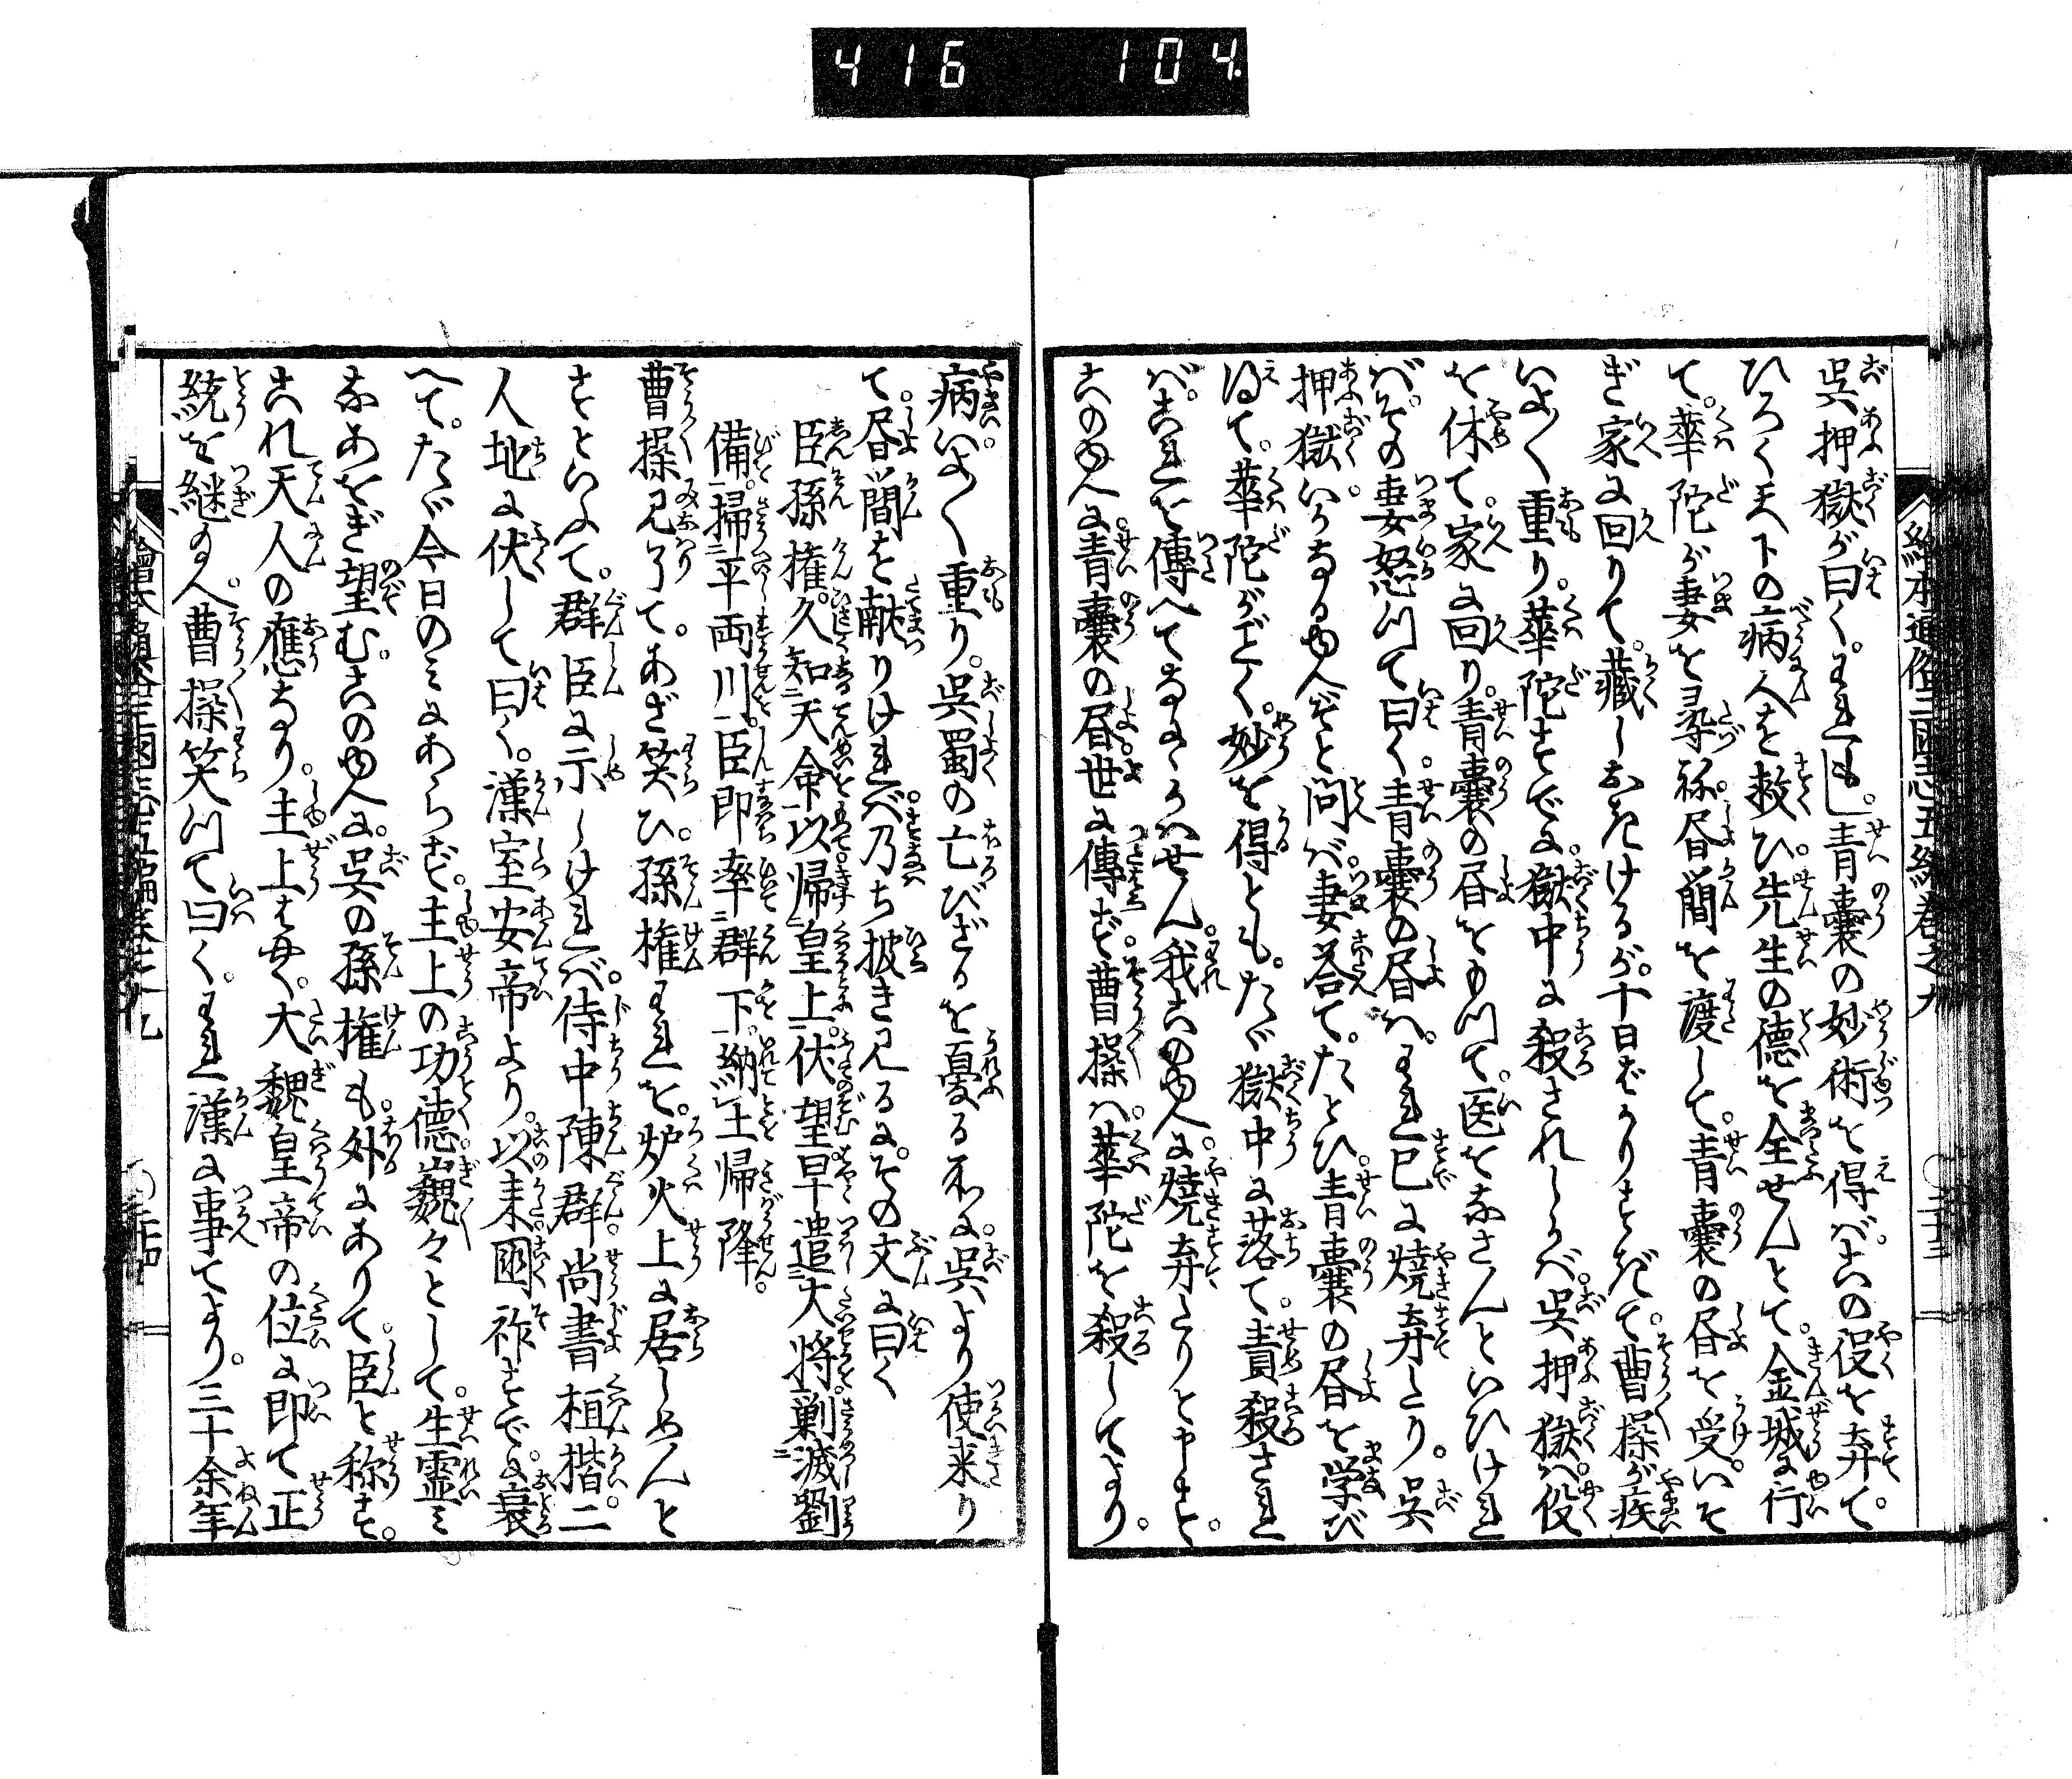 416 104
呉押獄が曰く。われもし青嚢の妙術を得ば。この役を弃て。
ひろく天下の病人を救ひ。先生の徳を全せんとて。金城に行
て。華陀が妻を尋ね。書簡を渡して。青嚢の書を受。いそ
ぎ家に回りて。蔵しおきけるが。十日ばかりすぎて。曹操が疾
いよ〱重り。華陀すでに。獄中に殺されしかべ。呉押獄ハ役
を休て。家に回り。青嚢の書をもつて。医をなさんといひけれ
ば。その妻怒つて曰く。青嚢の書ハ。われ已に焼弃たり。呉
押獄。いかなるゆへぞと問ば。妻答て。たとひ。青嚢の書を学び
得て。華陀がごとく。妙を得とも。たゞ獄中に落て。責殺され
ば。これを傳へてなにかハせん。我このゆへに。焼弃たりとやす。
このゆへに青嚢の書。世に傳ず。曹操ハ。華陀を殺してより。
病いよ〱重り。呉蜀の亡びざるを憂る所に。呉より使来り
て。書簡を献りけれべ。乃ち披き見るに。その文に曰く
臣孫権。久知天命以帰皇上。伏望早遣大将剿滅劉
備。掃平両川。臣即率群下。納土帰降。
曹操見了て。あざ笑ひ。孫権われを。炉火上に居しめんと
すといふて。群臣に示しけれバ。侍中陳群。尚書桓楷。二
人地に伏して曰く。漢室安帝より。以来國祚すでに。衰
へて。たゞ今日のミにあらず。主上の功徳。巍々として。生霊ミ
なあをぎ望む。このゆへに。呉の孫権も。外にありて。臣と称す。
これ天人の應なり。主上はやく。大魏皇帝の位に即て正
統を継玉へ。曹操笑つて曰く。われ漢に事てより。三十余年